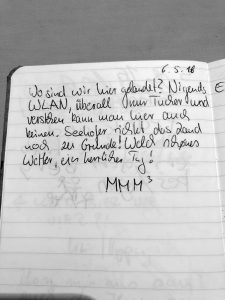 6.5.18
Wo sind wir hier gelandet? Nirgends
WLAN, überall nur Tücher und
verstehen kann man hier auch
keinen. Seehofer richtet das Land
noch zu Grunde! Welch schönes
Wetter, ein herrlicher Tag!
MMM³
E